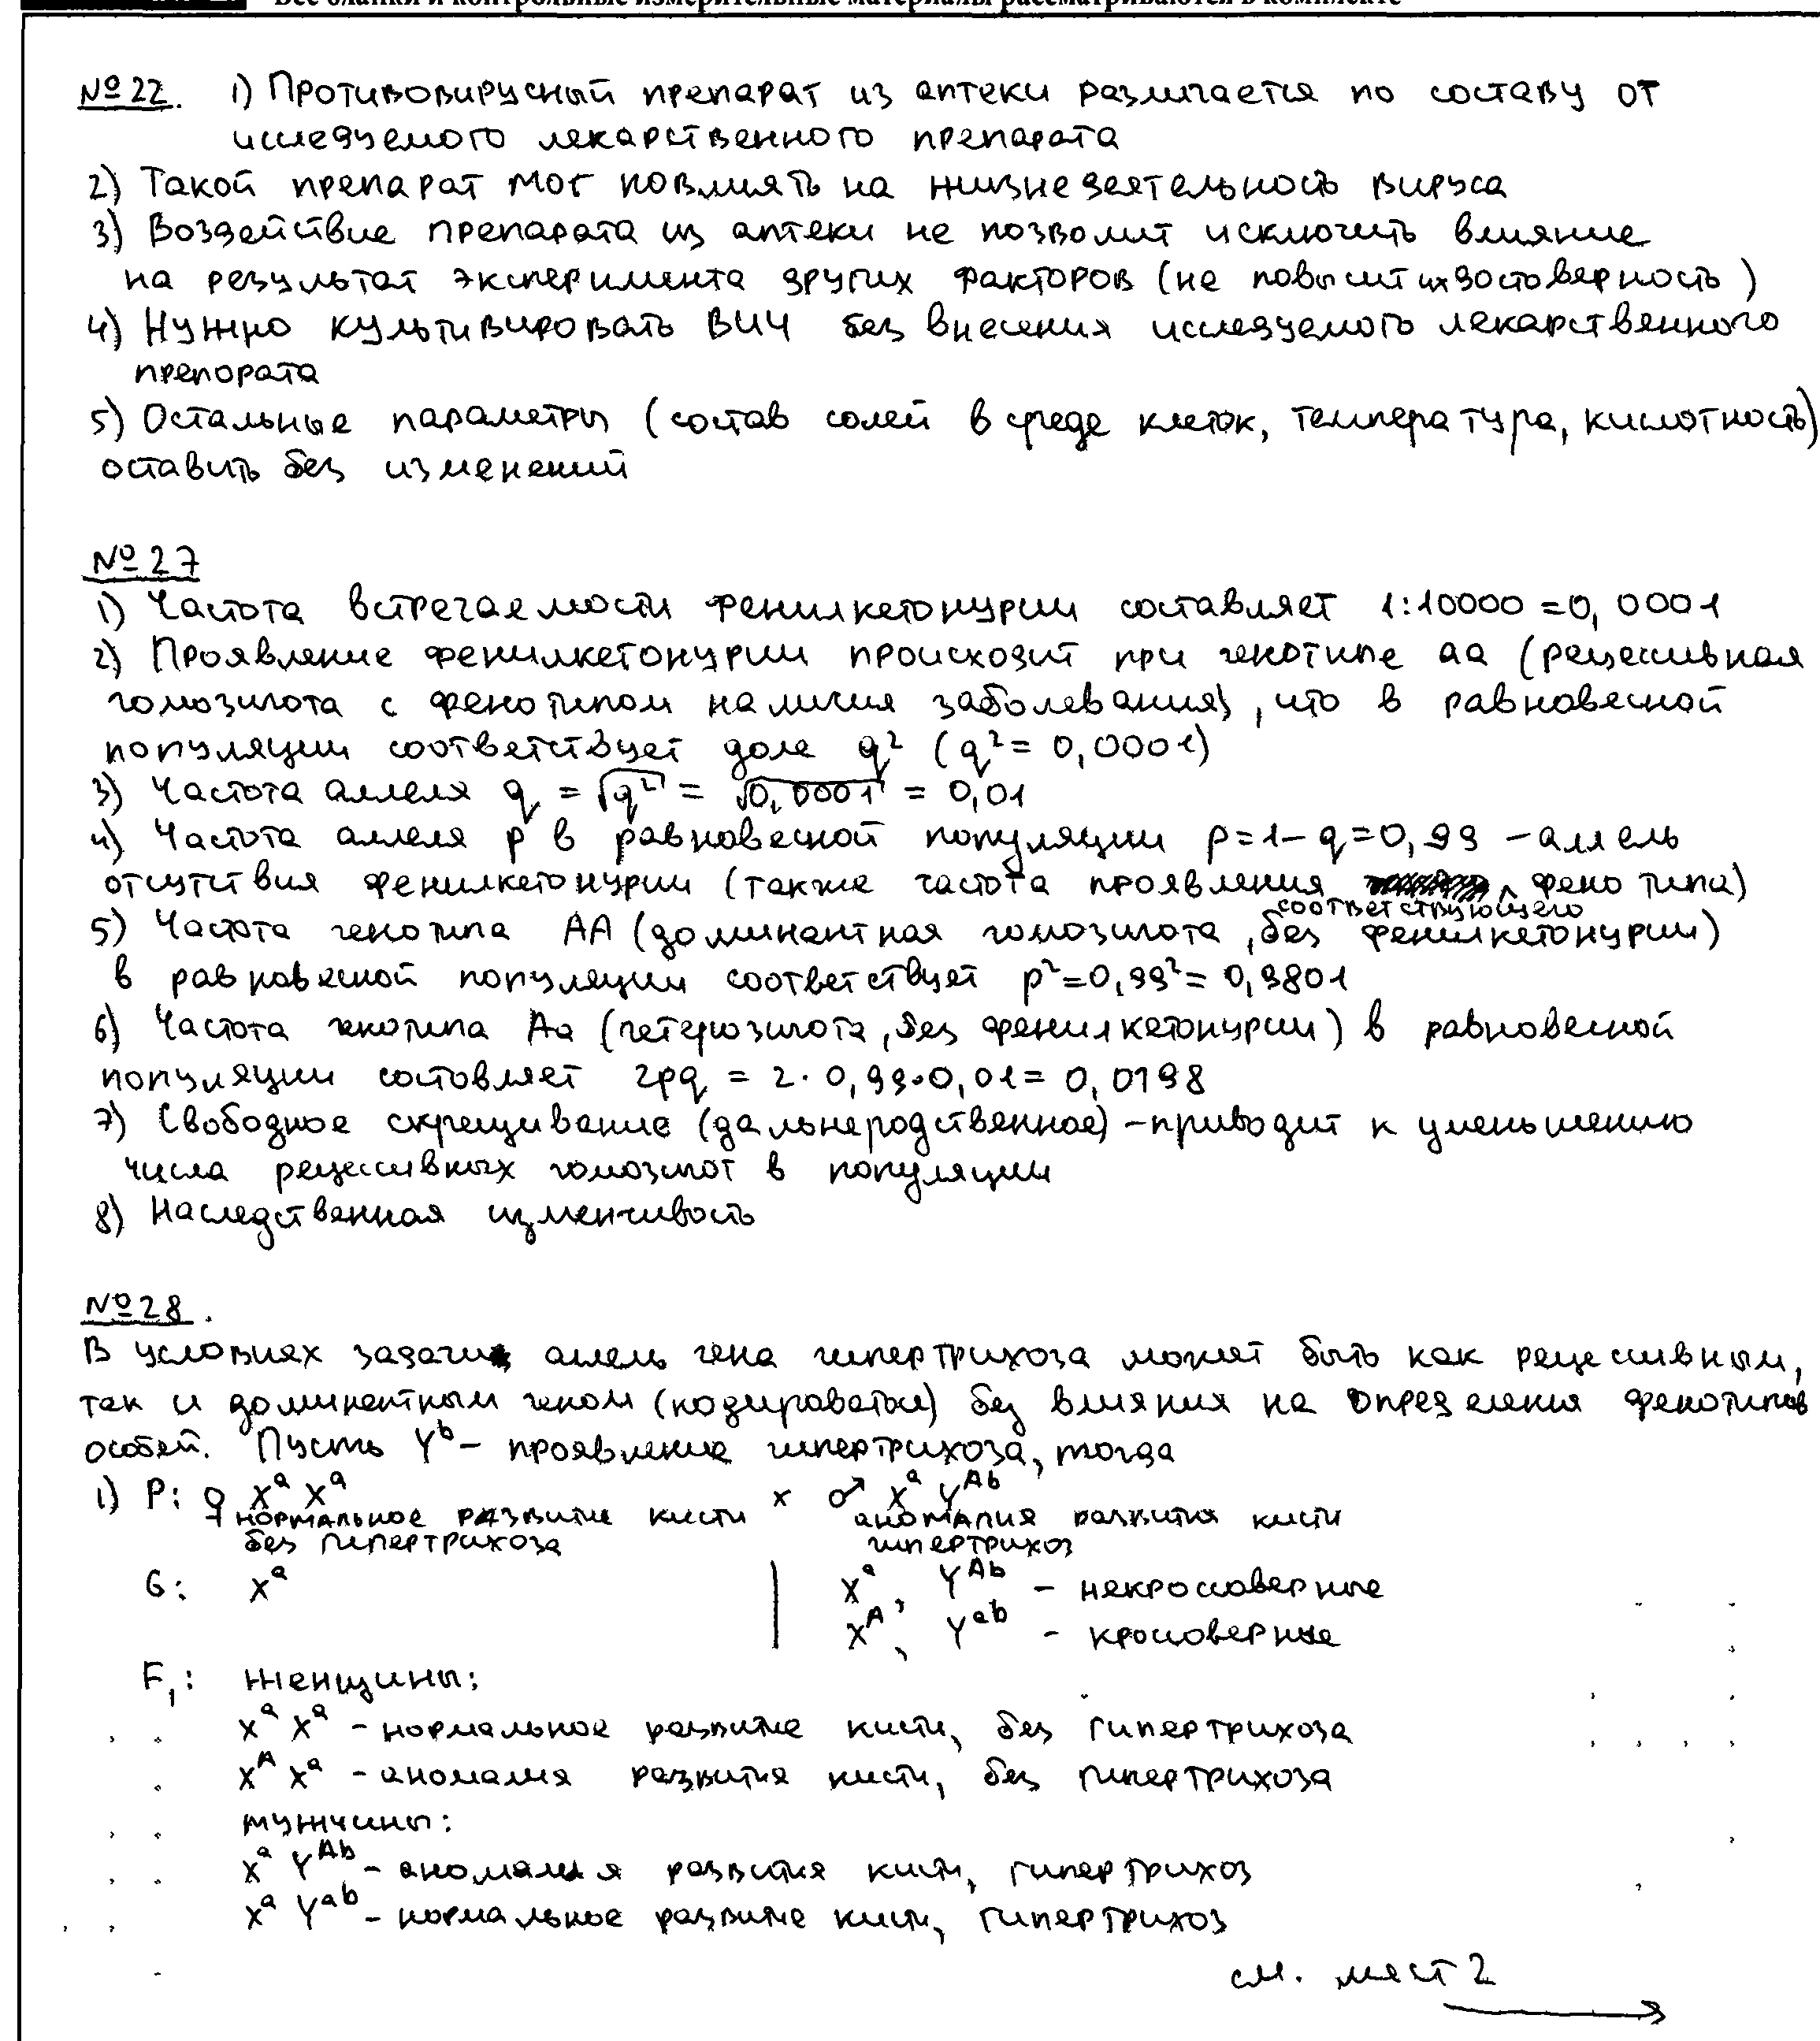 Все бланки и контрольные измерительные материалы рассматриваются в комплекте
№22. 1) Противовирусный препарат из аптеки различается по составу от
исследуемого лекарственного препарата
2) Такой препарат мог повлиять на жизнедеятельность вируса
3) Воздействие препарата из аптеки не позволит исключить влияние
на результат эксперимента других факторов (не повысит их достоверность)
4) Нужно культивировать ВИЧ без внесения исследуемого лекарственного
препората
5) Остальные параметры (состав солей в среде клеток, температура, кислотность)
оставить без изменений
№27
1) Частота встречаемости фенилкетонурии составляет 1:10000 = 0,0001
2) Проявление фенилкетонурии происходит при генотипе aa (рецессивная
гомозигота с фенотипом наличия заболевания), что в равновесной
популяции соответствует доле q² (q² = 0,0001)
3) Частота аллеля q = √q² = √0,0001 = 0,01
4) Частота аллеля p в равновесной популяции p=1-q=0,99 - аллель
отсутствия фенилкетонурии (также частота проявления фенотипа)
соответствующего
5) Частота генотипа AA (доминантная гомозигота, без фенилкетонурии)
в равновесной популяции соответствует p²=0,99²=0,9801
6) Частота генотипа Aa (гетерозигота, без фенилкетонурии) в равновесной
популяции состовляет 2pq = 2·0,99·0,01= 0,0198
7) Свободное скрещивание (дальнеродственное) - приводит к уменьшению
числа рецессивных гомозигот в популяции
8) Наследственная изменчивость
№28.
В условиях задачи аллель гена гипертрихоза может быть как рецессивным,
так и доминантным геном (кодироваться) без влияния на определения фенотипов
особей. Пусть Yᵇ - проявление гипертрихоза, тогда
1) P: ♀ Xᵃ Xᵃ × ♂ Xᵃ Yᴬᵇ
нормальное развитие кисти аномалия развития кисти
без гипертрихоза гипертрихоз
G: Xᵃ | Xᵃ, Yᴬᵇ - некроссоверные
Xᴬ, Yᵃᵇ - кроссоверные
F₁: Женщины:
Xᵃ Xᵃ - нормальное развитие кисти, без гипертрихоза
Xᴬ Xᵃ - аномалия развития кисти, без гипертрихоза
мужчины:
Xᵃ Yᴬᵇ - аномалия развития кисти, гипертрихоз
Xᵃ Yᵃᵇ - нормальное развитие кисти, гипертрихоз
см. лист 2